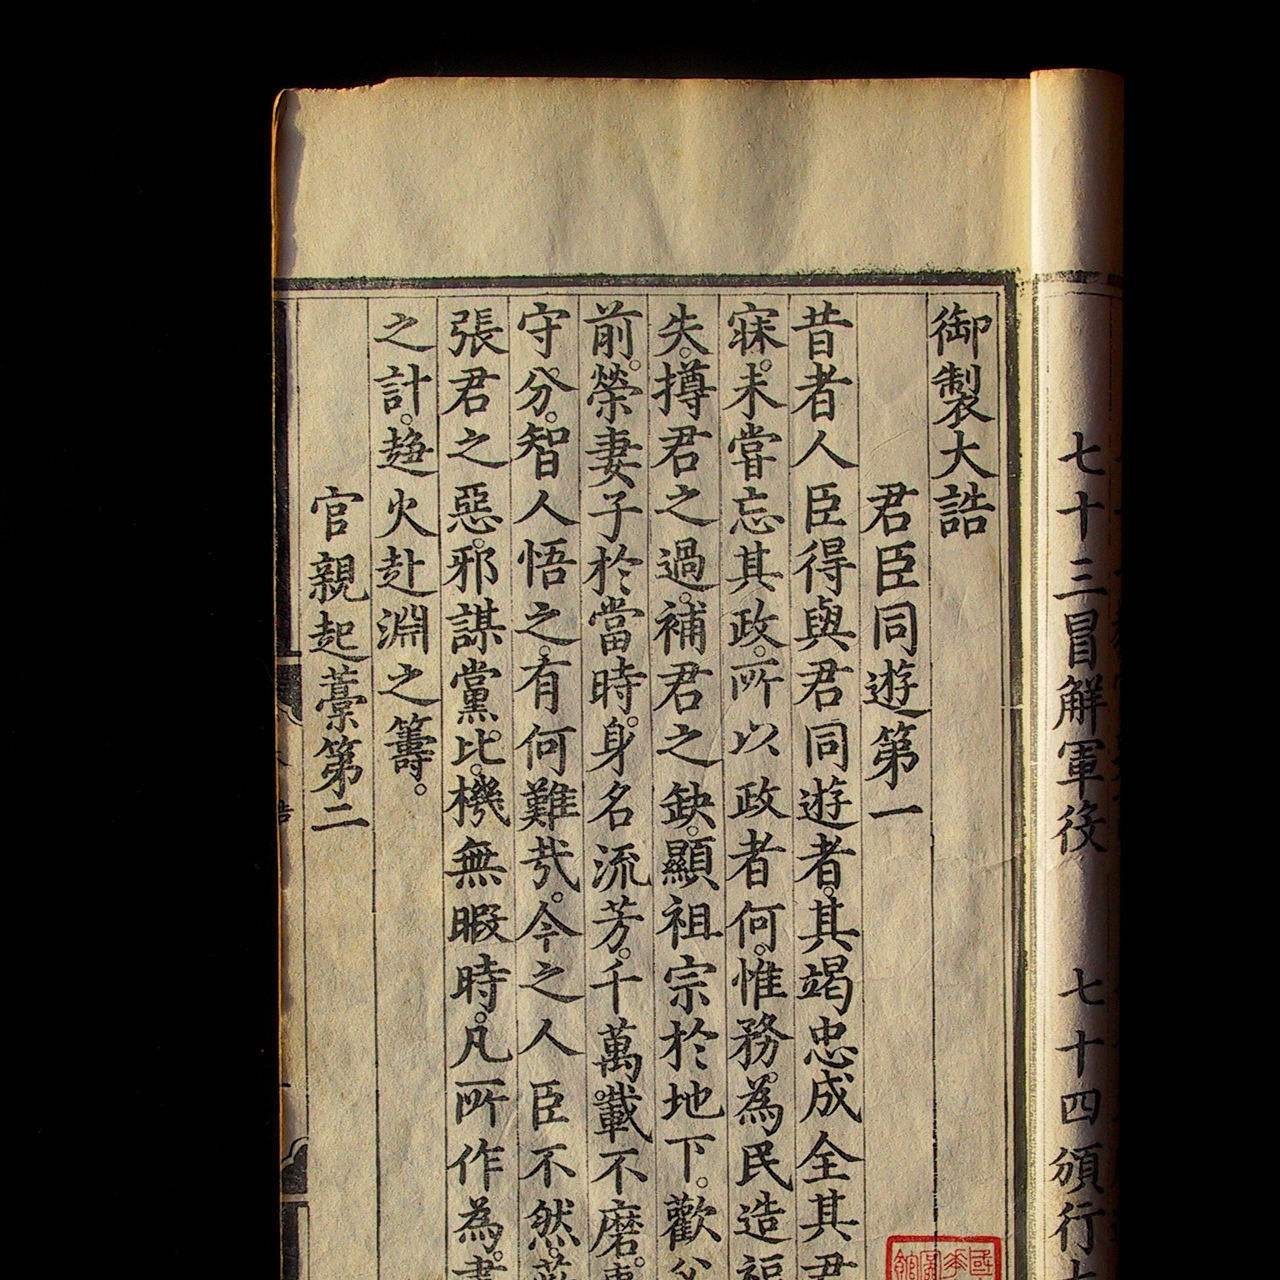 七十三冒解軍役 七十四頒行
御製大誥
君臣同遊第一
昔者人臣得與君同遊者。其竭忠成全其君
寐。未嘗忘其政。所以政者何。惟務為民造福
失。撙君之過。補君之缺。顯祖宗於地下。歡父
前。榮妻子於當時。身名流芳。千萬載不磨。
守分。智人悟之。有何難哉。今之人臣不然。蔽
張君之惡。邪謀黨比。機無暇時。凡所作為。盡
之計。趨火赴淵之籌。
官親起藁第二